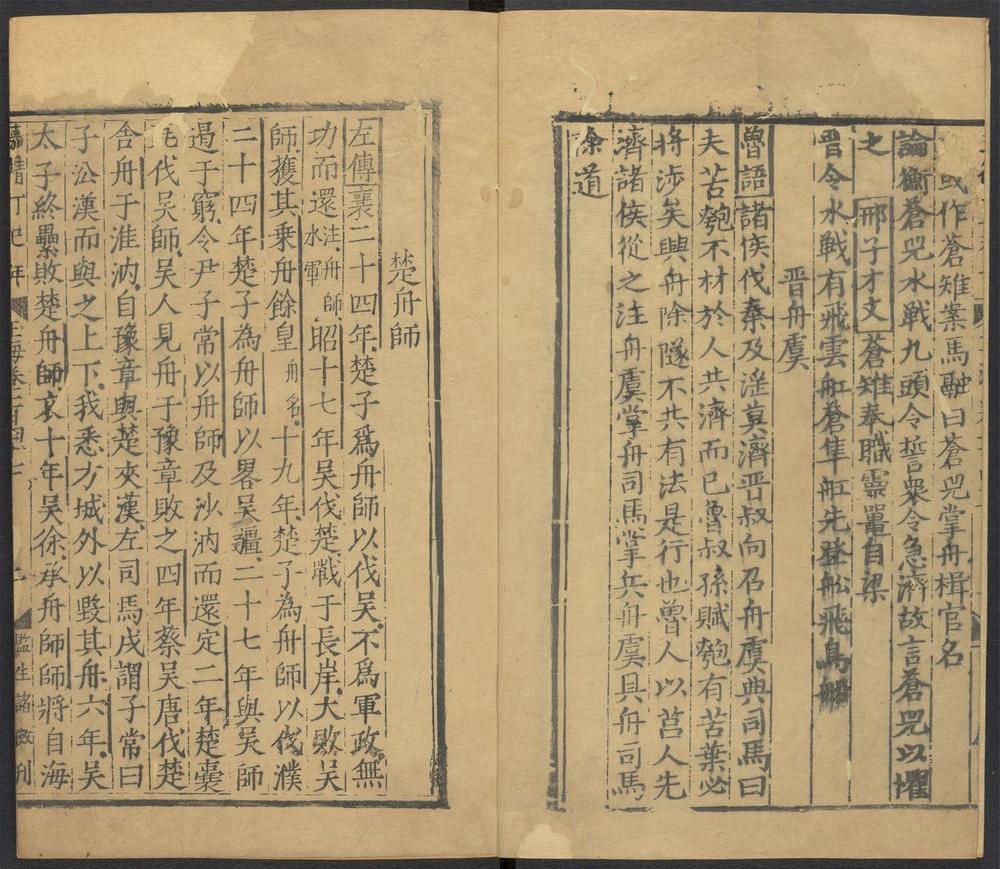 或作蒼雉案馬融曰蒼兕掌舟楫官名
論衡蒼兕水戰九頭令誓衆令急濟故言蒼兕以懼
之 邢子才文蒼雉奉職靈鼉自梁
晋令水戰有飛雲舡蒼隼舡先登舩飛鳥船
晋舟虞
魯語諸侯伐秦及涇莫濟晋叔向召舟虞典司馬曰
夫苦匏不材於人共濟而已魯叔孫賦匏有苦葉必
將涉矣與舟除隧不共有法是行也魯人以莒人先
濟諸侯從之注舟虞掌舟司馬掌兵舟虞具舟司馬
除道
楚舟師
左傳襄二十四年楚子爲舟師以伐吳不爲軍政無
功而還注舟師水軍昭十七年吳伐楚戰于長岸大敗吳
師獲其乗舟餘皇舟名十九年楚子為舟師以伐濮
二十四年楚子為舟師以畧吳疆二十七年與吳師
遏于窮令尹子常以舟師及沙汭而還定二年楚囊
瓦伐吳師吳人見舟于豫章敗之四年蔡吳唐伐楚
舍舟于淮汭自豫章與楚夾漢左司馬戌謂子常曰
子㳂漢而與之上下我悉方城外以毀其舟六年吳
太子終纍敗楚舟師哀十年吳徐承舟師師將自海
嘉靖丁巳年 玉海卷一百四十七 七 監生諸 刊